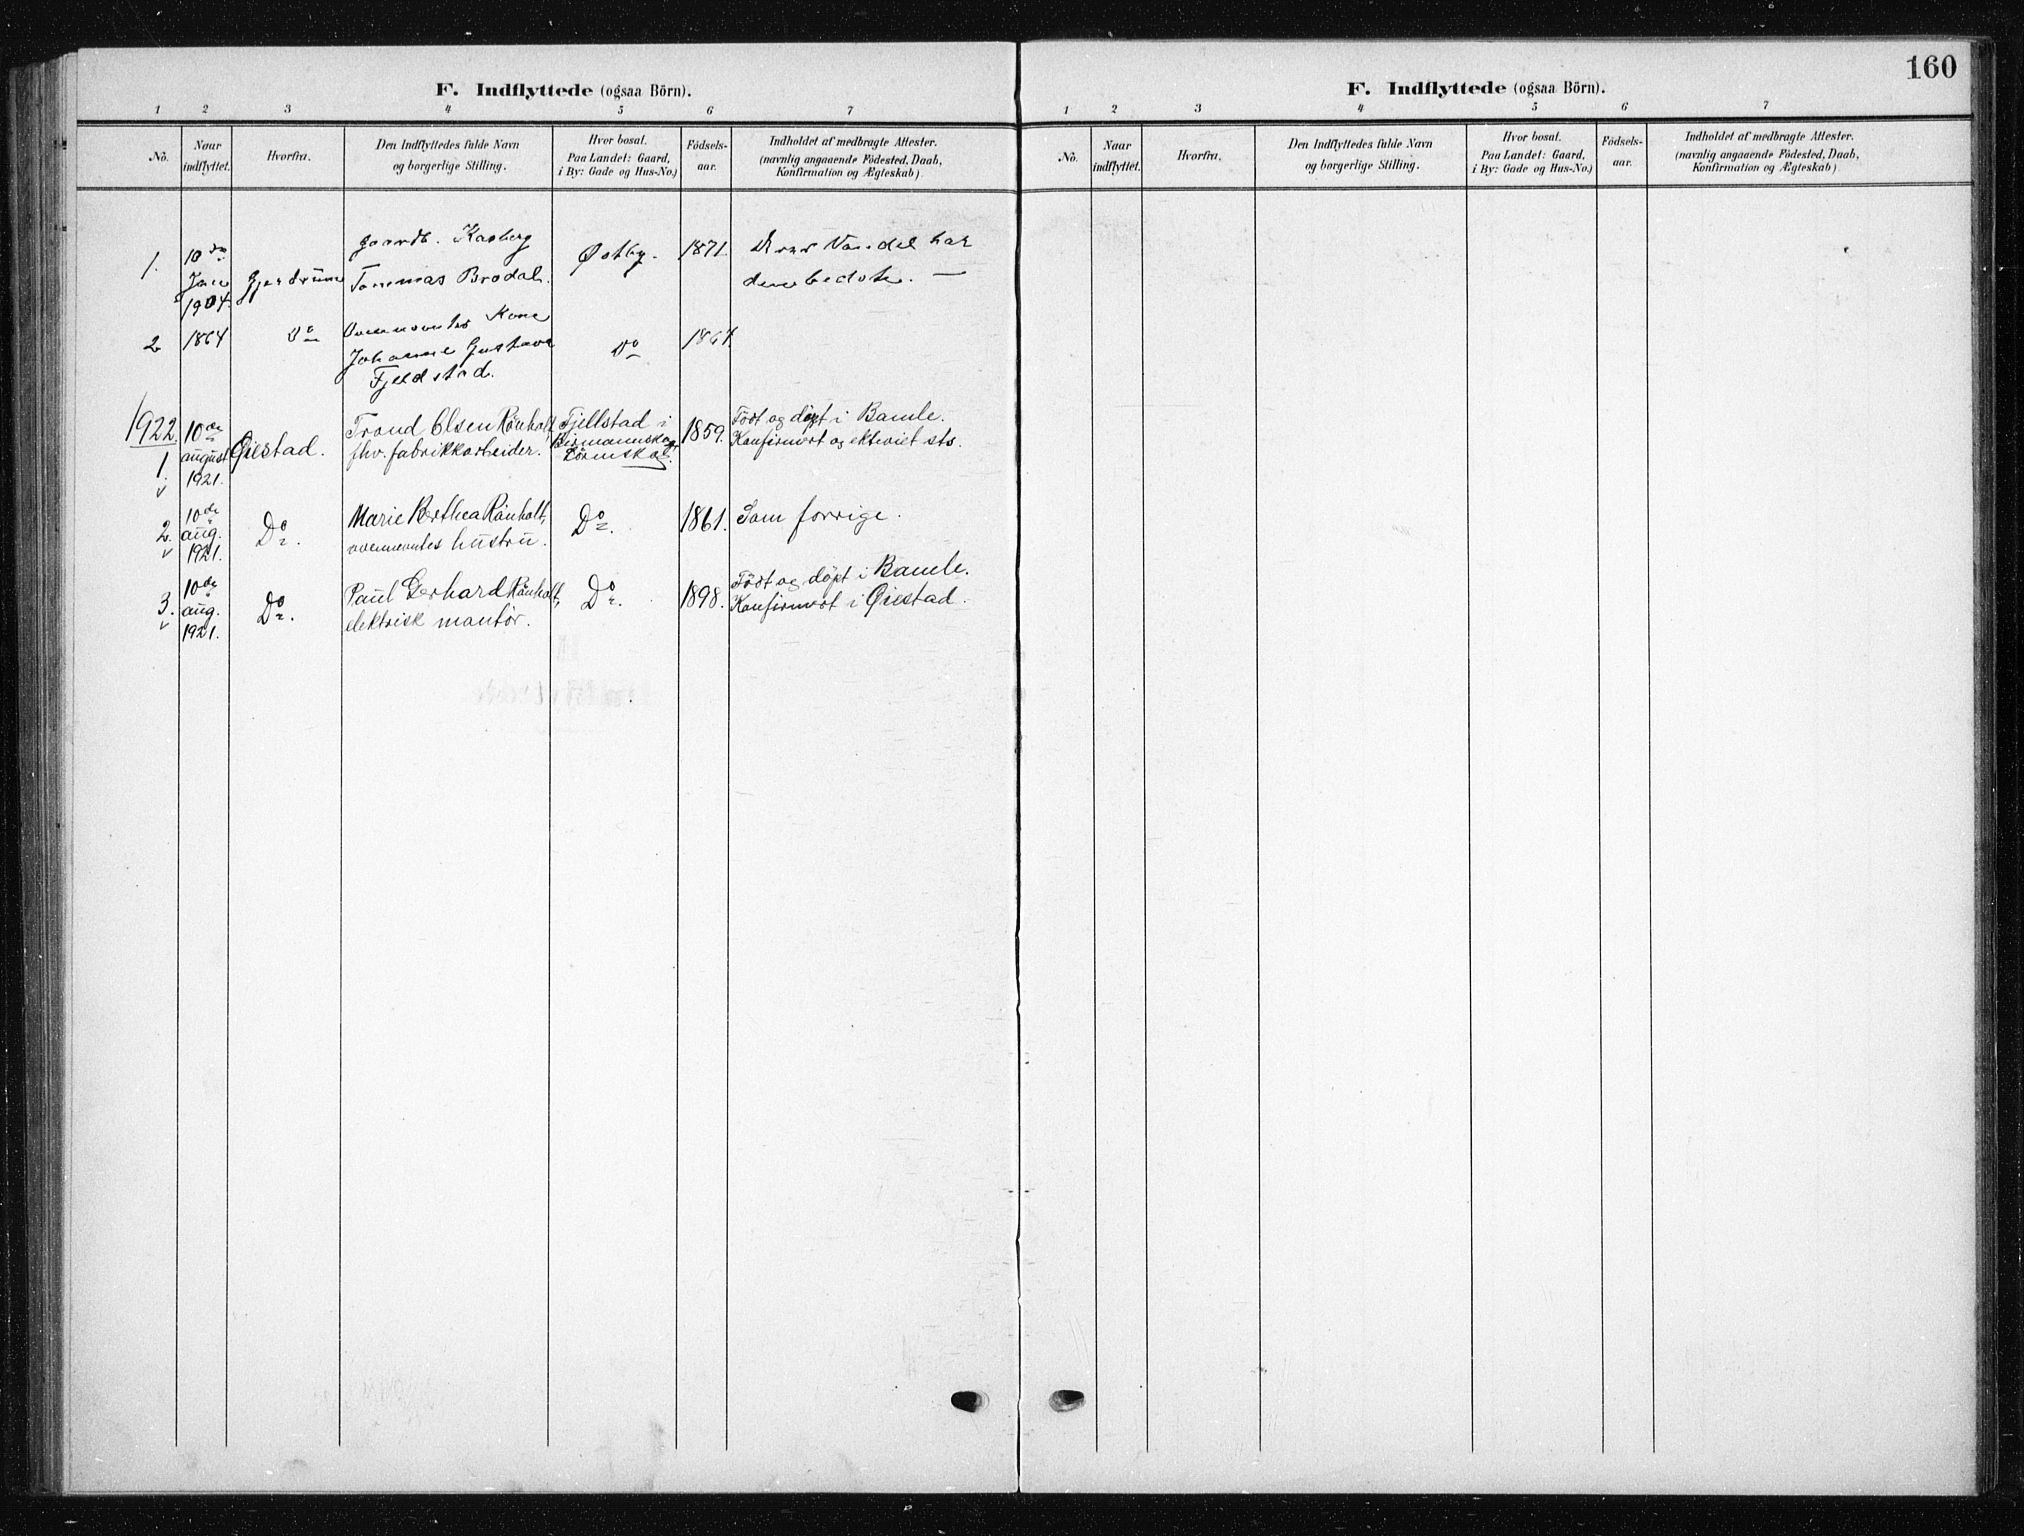 160
F. Indflyttede (ogsaa Börn).
1 2 3 4 5 6 7
No. Naar indflyttet. Hvorfra. Den Indflyttedes fulde Navn og borgerlige Stilling. Hvor bosat. Paa Landet: Gaard, i By: Gade og Hus-No.) Födsels-aar. Indholdet af medbragte Attester. (navnlig angaaende Födested, Daab, Konfirmation og Ægteskab)
1. 10de Jan 1904. Gjerdrum gaardb. Kasberg Tommas Brodal. Østby. 1871.
2 1864 Do Johanne Gustava Fjeldstad. Do 1864.
1922.
1. 10de august 1921. Øiestad. Trond Olsen Rönholt, fhv. fabrikkarbeider. Fjellstad i 1859. Födt og döpt i Bamle. Konfirmert og
2. 10de aug. 1921. Do. Marie Berthea Rönholt, ovennevntes hustru. Do. 1861. Som forrige.
3. 10de aug. 1921. Do. Paul Gerhard Rönholt, elektrisk montör. Do. 1898. Födt og döpt i Bamle. Konfirmert i Øiestad.
F. Indflyttede (ogsaa Börn).
1 2 3 4 5 6 7
No. Naar indflyttet. Hvorfra. Den Indflyttedes fulde Navn og borgerlige Stilling. Hvor bosat. Paa Landet: Gaard, i By: Gade og Hus-No.) Födsels-aar. Indholdet af medbragte Attester. (navnlig angaaende Födested, Daab, Konfirmation og Ægteskab)